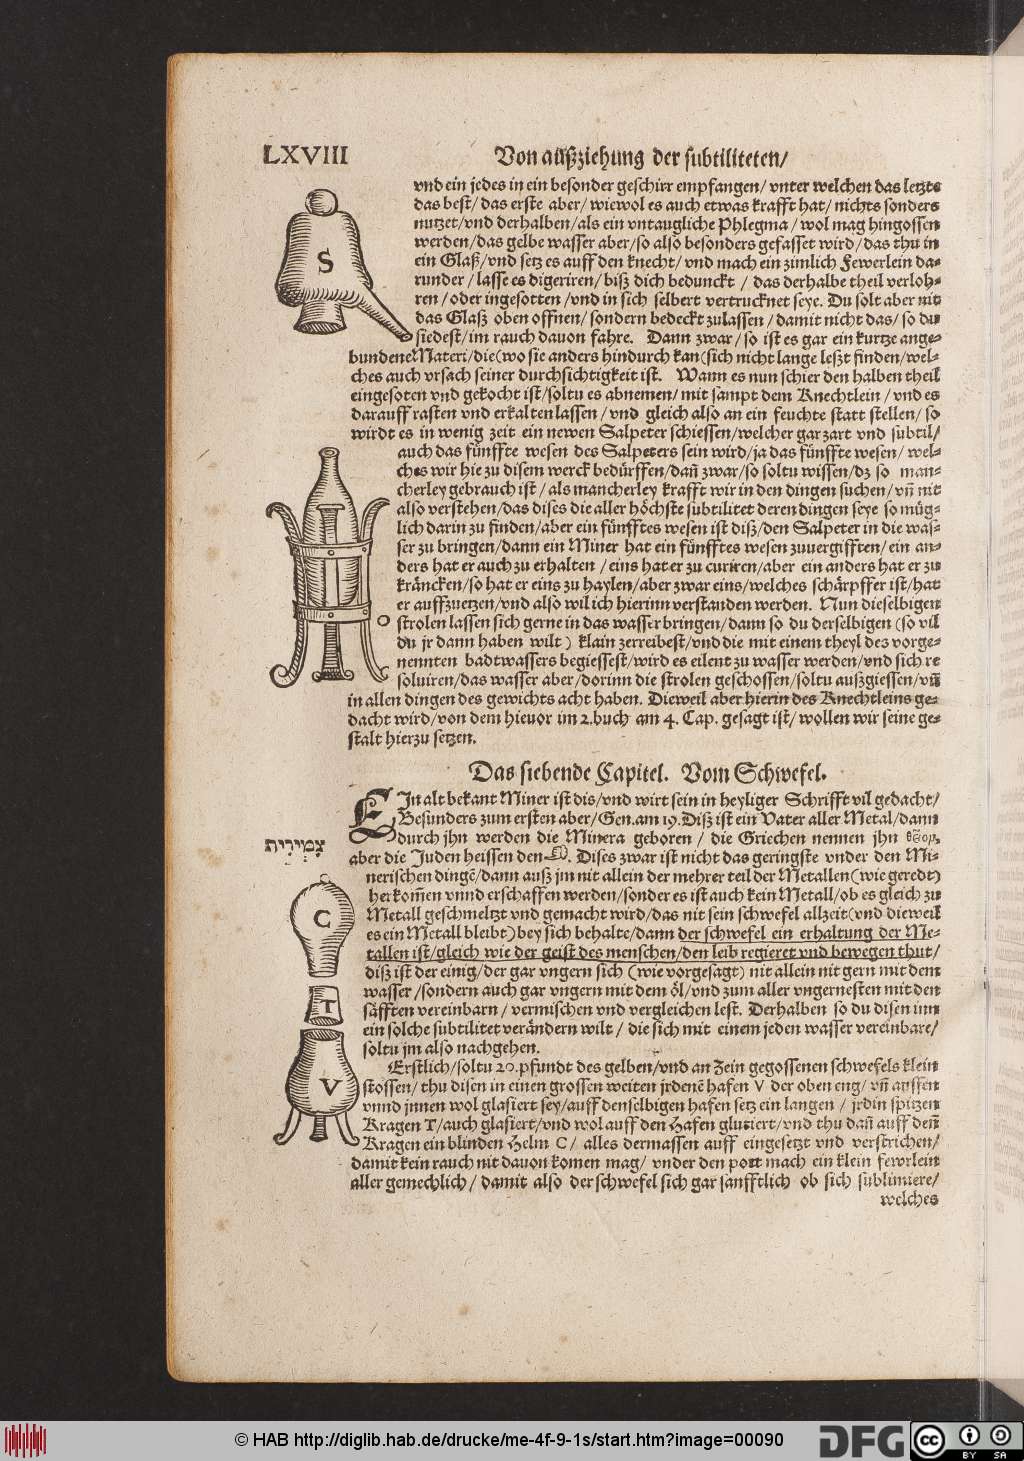 LXVIII
Von außziehung der subtiliteten/
vnd ein jedes in ein besonder geschirr empfangen/ vnter welchen das letzte
das best/ das erste aber/ wiewol es auch etwas krafft hat/ nichts sonders
nutzet/ vnd derhalben/ als ein vntaugliche Phlegma/ wol mag hingossen
werden/ das gelbe wasser aber/ so also besonders gefasset wird/ das thu in
ein Glaß/ vnd setz es auff den knecht/ vnd mach ein zimlich Fewerlein da-
runder/ lasse es digeriren/ biß dich bedunckt/ das derhalbe theil verloh-
ren/ oder ingesotten/ vnd in sich selbert vertrucknet seye. Du solt aber nit
das Glaß oben offnen/ sondern bedeckt zulassen/ damit nicht das/ so du
siedest/ im rauch dauon fahre. Dann zwar/ so ist es gar ein kurtze ange-
bundene Materi/ die (wo sie anders hindurch kan (sich nicht lange leßt finden/ wel-
ches auch vrsach seiner durchsichtigkeit ist. Wann es nun schier den halben theil
eingesoten vnd gekocht ist/ soltu es abnemen/ mit sampt dem Knechtlein/ vnd es
darauff rasten vnd erkalten lassen/ vnd gleich also an ein feuchte statt stellen/ so
wirdt es in wenig zeit ein newen Salpeter schiessen/ welcher gar zart vnd subtil/
auch das fünffte wesen des Salpeters sein wird/ ja das fünffte wesen/ wel-
ches wir hie zu disem werck bedürffen/ dañ zwar/ so soltu wissen/ dz so man-
cherley gebrauch ist/ als mancherley krafft wir in den dingen suchen/ vñ nit
also verstehen/ das dises die aller höchste subtilitet deren dingen seye so müg-
lich darin zu finden/ aber ein fünfftes wesen ist diß/ den Salpeter in die was-
ser zu bringen/ dann ein Miner hat ein fünfftes wesen zuuergifften/ ein an-
ders hat er auch zu erhalten/ eins hat er zu curiren/ aber ein anders hat er zu
kräncken/ so hat er eins zu haylen/ aber zwar eins/ welches schärpffer ist/ hat
er auffzuetzen/ vnd also wil ich hierinn verstanden werden. Nun dieselbigen
strolen lassen sich gerne in das wasser bringen/ dann so du derselbigen (so vil
du jr dann haben wilt) klain zerreibest/ vnd die mit einem theyl des vorge-
nennten badtwassers begiessest/ wird es eilent zu wasser werden/ vnd sich re
soluiren/ das wasser aber/ dorinn die strolen geschossen/ soltu außgiessen/ vñ
in allen dingen des gewichts acht haben. Dieweil aber hierin des Knechtleins ge-
dacht wird/ von dem hieuor im 2. buch am 4. Cap. gesagt ist/ wollen wir seine ge-
stalt hierzu setzen.
S
Das siebende Capitel. Vom Schwefel.
EIn alt bekant Miner ist dis/ vnd wirt sein in heyliger Schrifft vil gedacht/
Besunders zum ersten aber/ Gen. am 19. Diß ist ein Vater aller Metal/ dann
durch jhn werden die Minera geboren/ die Griechen nennen jhn
aber die Juden heissen den. Dises zwar ist nicht das geringste vnder den Mi-
nerischen dingẽ/ dann auß jm nit allein der mehrer teil der Metallen (wie geredt)
herkom̃en vnnd erschaffen werden/ sonder es ist auch kein Metall/ ob es gleich zu
Metall geschmeltzt vnd gemacht wird/ das nit sein schwefel allzeit (vnd dieweil
es ein Metall bleibt) bey sich behalte/ dann der schwefel ein erhaltung der Me-
tallen ist/ gleich wie der geist des menschen/ den leib regieret vnd bewegen thut/
diß ist der einig/ der gar vngern sich (wie vorgesagt) nit allein nit gern mit dem
wasser/ sondern auch gar vngern mit dem öl/ vnd zum aller vngernesten mit den
säfften vereinbarn/ vermischen vnd vergleichen lest. Derhalben so du disen inn
ein solche subtilitet verändern wilt/ die sich mit einem jeden wasser vereinbare/
soltu jm also nachgehen.
Erstlich/ soltu 20. pfundt des gelben/ vnd an Zein gegossenen schwefels klein
stossen/ thu disen in einen grossen weiten jrdenẽ hafen V der oben eng/ vñ aussen
vnnd jnnen wol glasiert sey/ auff denselbigen hafen setz ein langen/ jrdin spitzen
Kragen T/ auch glasiert/ vnd wol auff den Hafen glutiert/ vnd thu dañ auff deñ
Kragen ein blinden Helm C/ alles dermassen auff eingesetzt vnd verstrichen/
damit kein rauch nit dauon komen mag/ vnder den pott mach ein klein fewrlein
aller gemechlich/ damit also der schwefel sich gar sanfftlich ob sich sublimiere/
welches
צָמִירִית
C
T
V
© HAB http://diglib.hab.de/drucke/me-4f-9-1s/start.htm?image=00090
DFG
cc
BY SA